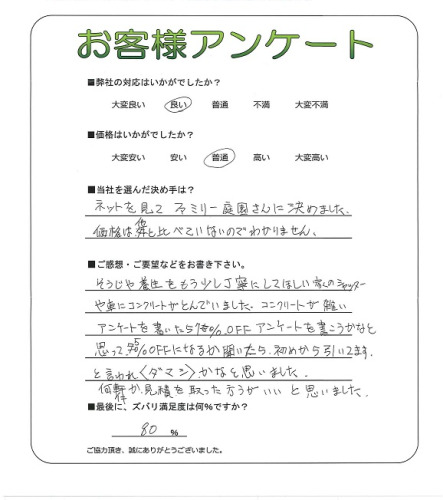 お客様アンケート
■弊社の対応はいかがでしたか？
大変良い 良い 普通 不満 大変不満
■価格はいかがでしたか？
大変安い 安い 普通 高い 大変高い
■当社を選んだ決め手は？
ネットを見て ファミリー庭園さんに決めました。
価格は他と比べていないのでわかりません。
■ご感想・ご要望などをお書き下さい。
そうじや養生をもう少し丁寧にしてほしい 家のシャッター
や車にコンクリートがとんでいました。コンクリートが
アンケートを書いたら %OFF アンケートを書こうかなと
思って、5%OFFになるか聞いたら、初めから引いてます。
と言われ〈ダマシ〉かなと思いました。
何軒か見積を取った方がいいと思いました。
■最後に、ズバリ満足度は何％ですか？
80 %
ご協力頂き、誠にありがとうございました。